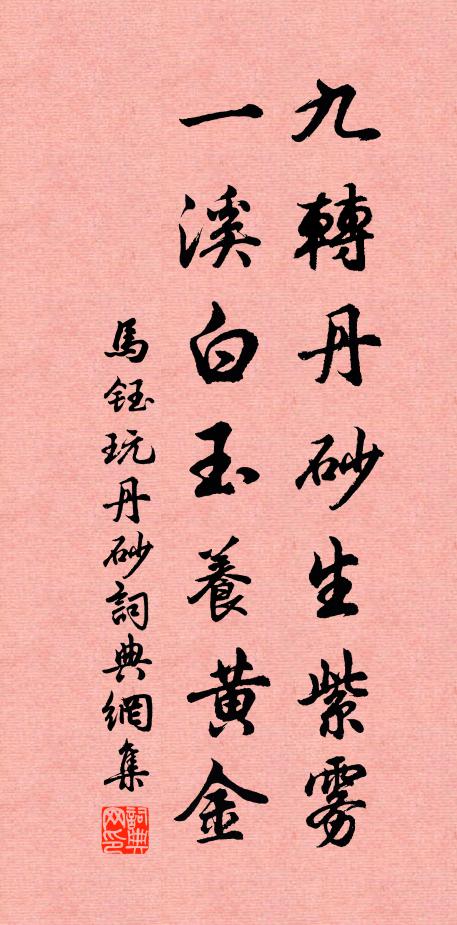 九轉丹砂生紫雾
一溪白玉養黃金
馬鈺玩丹砂詞典網集
詞典
网印